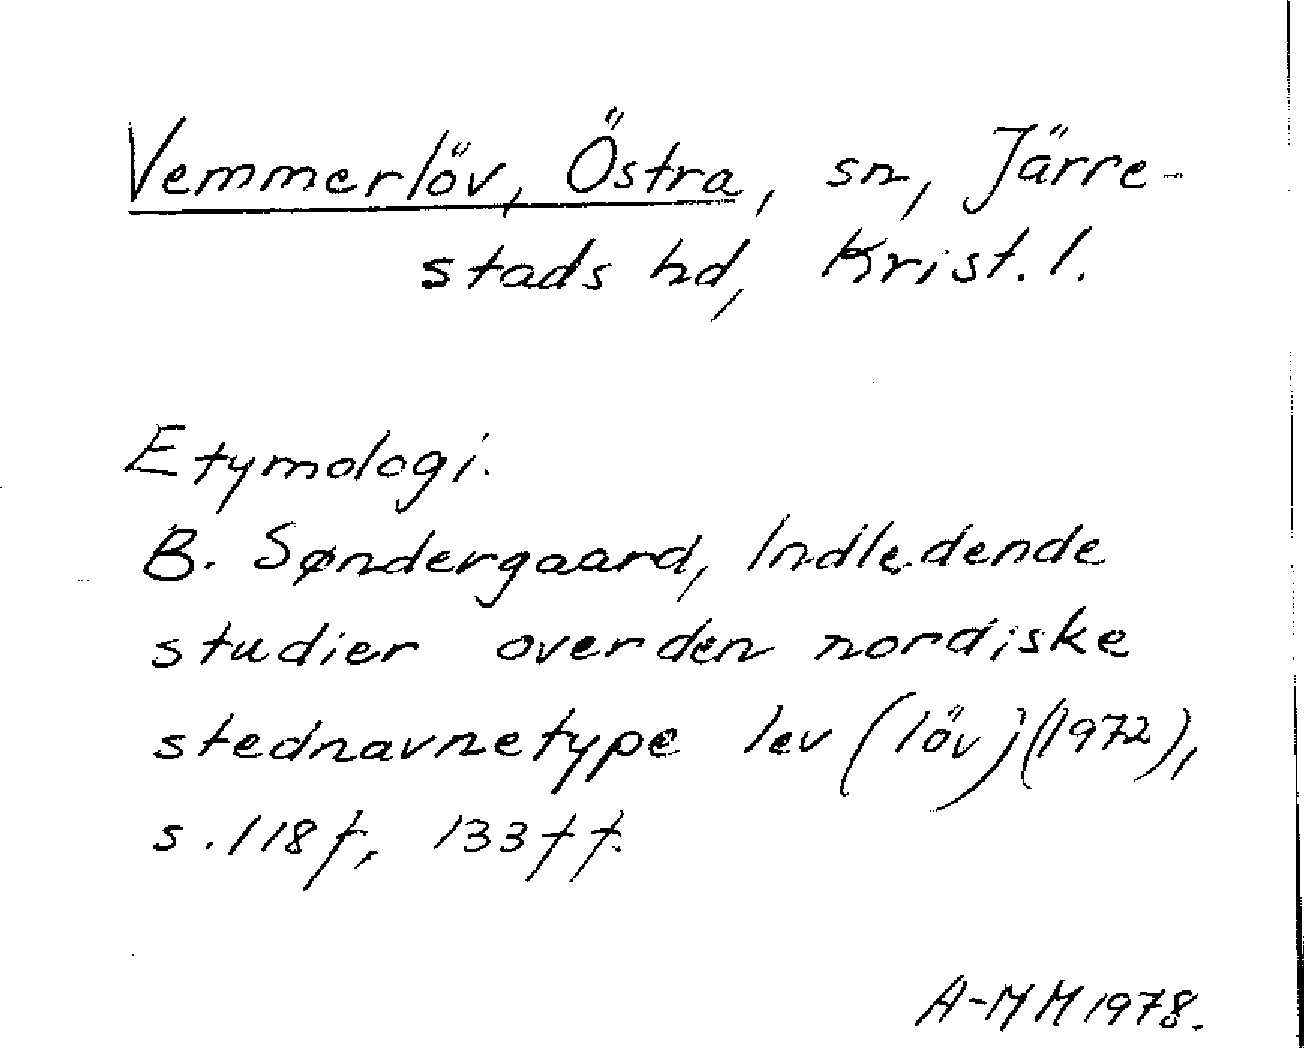 Vemmerlöv, Östra, sn, Järre-
stads hd, Krist. l.
Etymologi.
B. Søndergaard, Indledende
studier over den nordiske
stednavnetype lev (löv) (1972),
s. 118 f, 133 ff.
A-MM 1978.